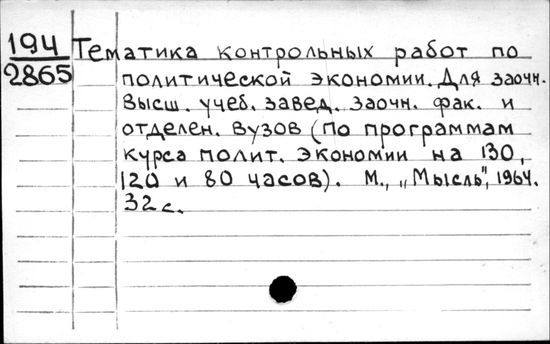 194 Тематика контрольных работ по
2865 политической экономии. Для заочн.
высш. учеб. завед. заочн. фак. и
отделен. вузов (по программам
курса полит. экономии на 130,
120 и 80 часов). М., „Мысль", 1964.
32 с.